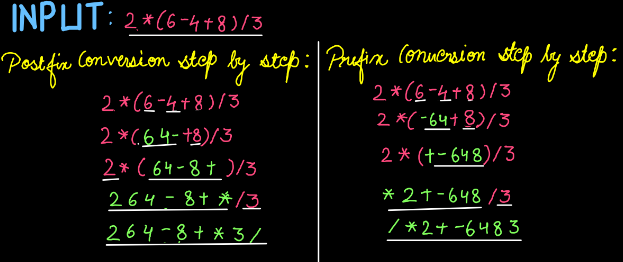 INPUT: 2*(6-4+8)/3
Postfix Conversion step by step:
2*(6-4+8)/3
2*(64-+8)/3
2*(64-8+)/3
264-8+*/3
264-8+*3/
Prefix Conversion step by step:
2*(6-4+8)/3
2*(-64+8)/3
2*(+-648)/3
*2+-648/3
/*2+-6483